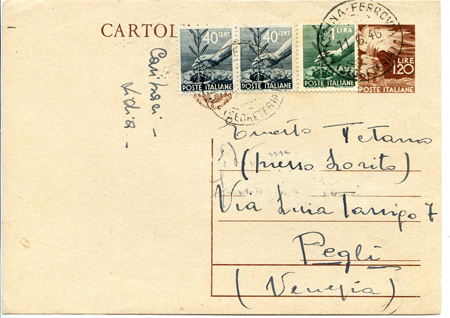 CARTOLIN
40 CENT
POSTE ITALIANE
40 CENT
POSTE ITALIANE
1 LIRA
POSTE ITALIANE
LIRE
1,20
POSTE ITALIANE
-FERROVIA
11.6.46
(SEGRETERIA)
Lidia -
Ernesto Tetamo
(presso Lorito)
Via Luia Tarigo 7
Pegli
(Venezia)